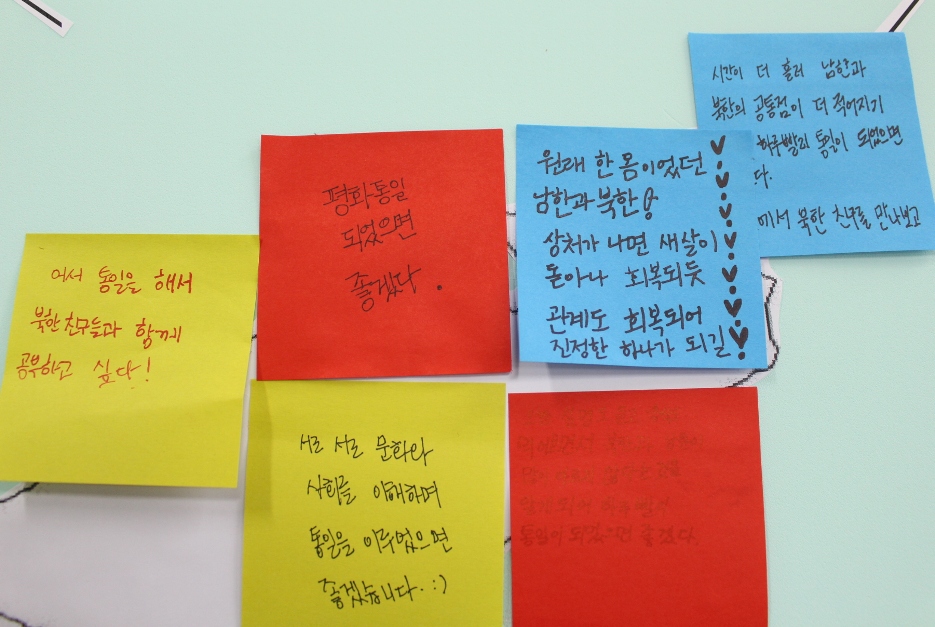 어서 통일을 해서
북한 친구들과 함께
공부하고 싶다!
평화통일
되었으면
좋겠다.
원래 한 몸이었던
남한과 북한
상처가 나면 새살이
돋아나 회복되듯
관계도 회복되어
진정한 하나가 되길
시간이 더 흘러 남한과
북한의 공통점이 더 적어지기
하루빨리 통일이 되었으면
다.
에서 북한 친구를 만나보고
서로 서로 문화와
사회를 이해하며
통일을 이루었으면
좋겠습니다. :)
통일이 되었으면 좋겠다.